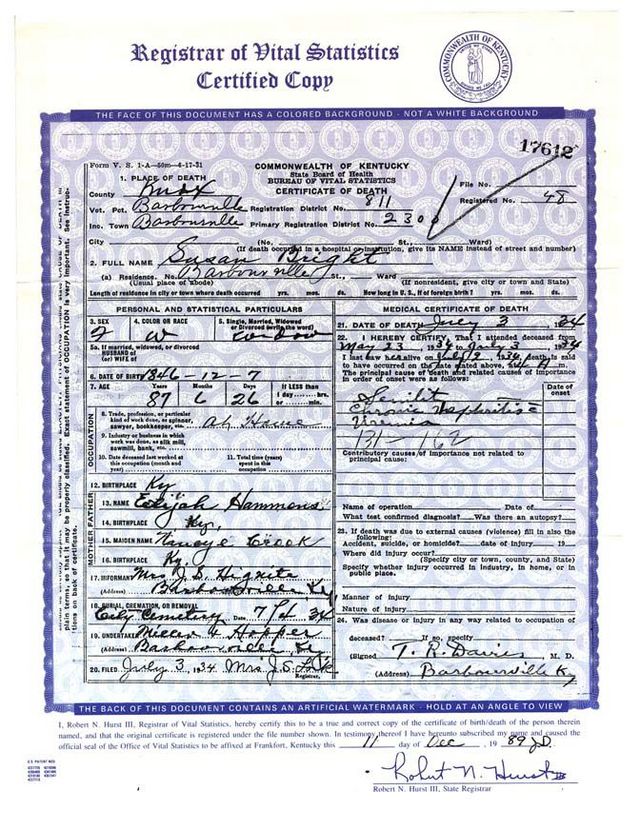 Registrar of Vital Statistics
Certified Copy
COMMONWEALTH OF KENTUCKY
THE FACE OF THIS DOCUMENT HAS A COLORED BACKGROUND - NOT A WHITE BACKGROUND
17612
Form V. S. 1-A—50m—4-17-31
COMMONWEALTH OF KENTUCKY
State Board of Health
BUREAU OF VITAL STATISTICS
CERTIFICATE OF DEATH
File No.
Registered No. 48
1. PLACE OF DEATH
County Knox
Vot. Pct. Barbourville Registration District No. 811
Inc. Town Barbourville Primary Registration District No. 2300
City (No. St., Ward)
(If death occurred in a hospital or institution, give its NAME instead of street and number)
2. FULL NAME Susan Bright
(a) Residence. No. Barbourville St., Ward
(Usual place of abode) (If nonresident, give city or town and State)
Length of residence in city or town where death occurred yrs. mos. ds. How long in U. S., if of foreign birth? yrs. mos. ds.
PERSONAL AND STATISTICAL PARTICULARS
3. SEX 4. COLOR OR RACE 5. Single, Married, Widowed
or Divorced (write the word)
F W Widow
5a. If married, widowed, or divorced
HUSBAND of
(or) WIFE of
6. DATE OF BIRTH 1846-12-7
7. AGE Years Months Days If LESS than
87 6 26 1 day hrs.
or min.
OCCUPATION
8. Trade, profession, or particular
kind of work done, as spinner,
sawyer, bookkeeper, etc. At Home
9. Industry or business in which
work was done, as silk mill,
sawmill, bank, etc.
10. Date deceased last worked at
this occupation (month and
year)
11. Total time (years)
spent in this
occupation
12. BIRTHPLACE Ky
FATHER
13. NAME Elijah Hammons
14. BIRTHPLACE Ky.
MOTHER
15. MAIDEN NAME Crook
16. BIRTHPLACE Ky.
17. INFORMANT Mrs J. B.
(Address) Barbourville Ky
18. BURIAL, CREMATION, OR REMOVAL
City Cemetery Date 7/4 34
19. UNDERTAKER Hopper
(Address) Barbourville Ky
20. FILED July 3 1934 Mrs J.S.
Registrar.
MEDICAL CERTIFICATE OF DEATH
21. DATE OF DEATH July 3 1934
22. I HEREBY CERTIFY, That I attended deceased from
May 1934 to July 3 1934
I last saw her alive on July 2, 1934, death is said
to have occurred on the date stated above, at A m.
The principal cause of death and related causes of importance
in order of onset were as follows:
Date of
onset
Senility
Chronic Nephritis
Uremia
131-162
Contributory causes of importance not related to
principal cause:
Name of operation Date of
What test confirmed diagnosis? Was there an autopsy?
23. If death was due to external causes (violence) fill in also the
following:
Accident, suicide, or homicide? date of injury 19
Where did injury occur?
(Specify city or town, county, and State)
Specify whether injury occurred in industry, in home, or in
public place.
Manner of injury
Nature of injury
24. Was disease or injury in any way related to occupation of
deceased? If so, specify
(Signed T. R. Davies, M. D.
(Address) Barbourville Ky
THE BACK OF THIS DOCUMENT CONTAINS AN ARTIFICIAL WATERMARK - HOLD AT AN ANGLE TO VIEW
I, Robert N. Hurst III, Registrar of Vital Statistics, hereby certify this to be a true and correct copy of the certificate of birth/death of the person therein
named, and that the original certificate is registered under the file number shown. In testimony thereof I have hereunto subscribed my name and caused the
official seal of the Office of Vital Statistics to be affixed at Frankfort, Kentucky this 11 day of Dec, 19 89 JD.
Robert N. Hurst III
Robert N. Hurst III, State Registrar